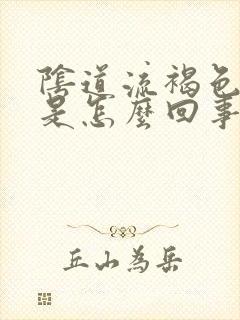 陰道流褐色
是怎麼回事
丘山為岳